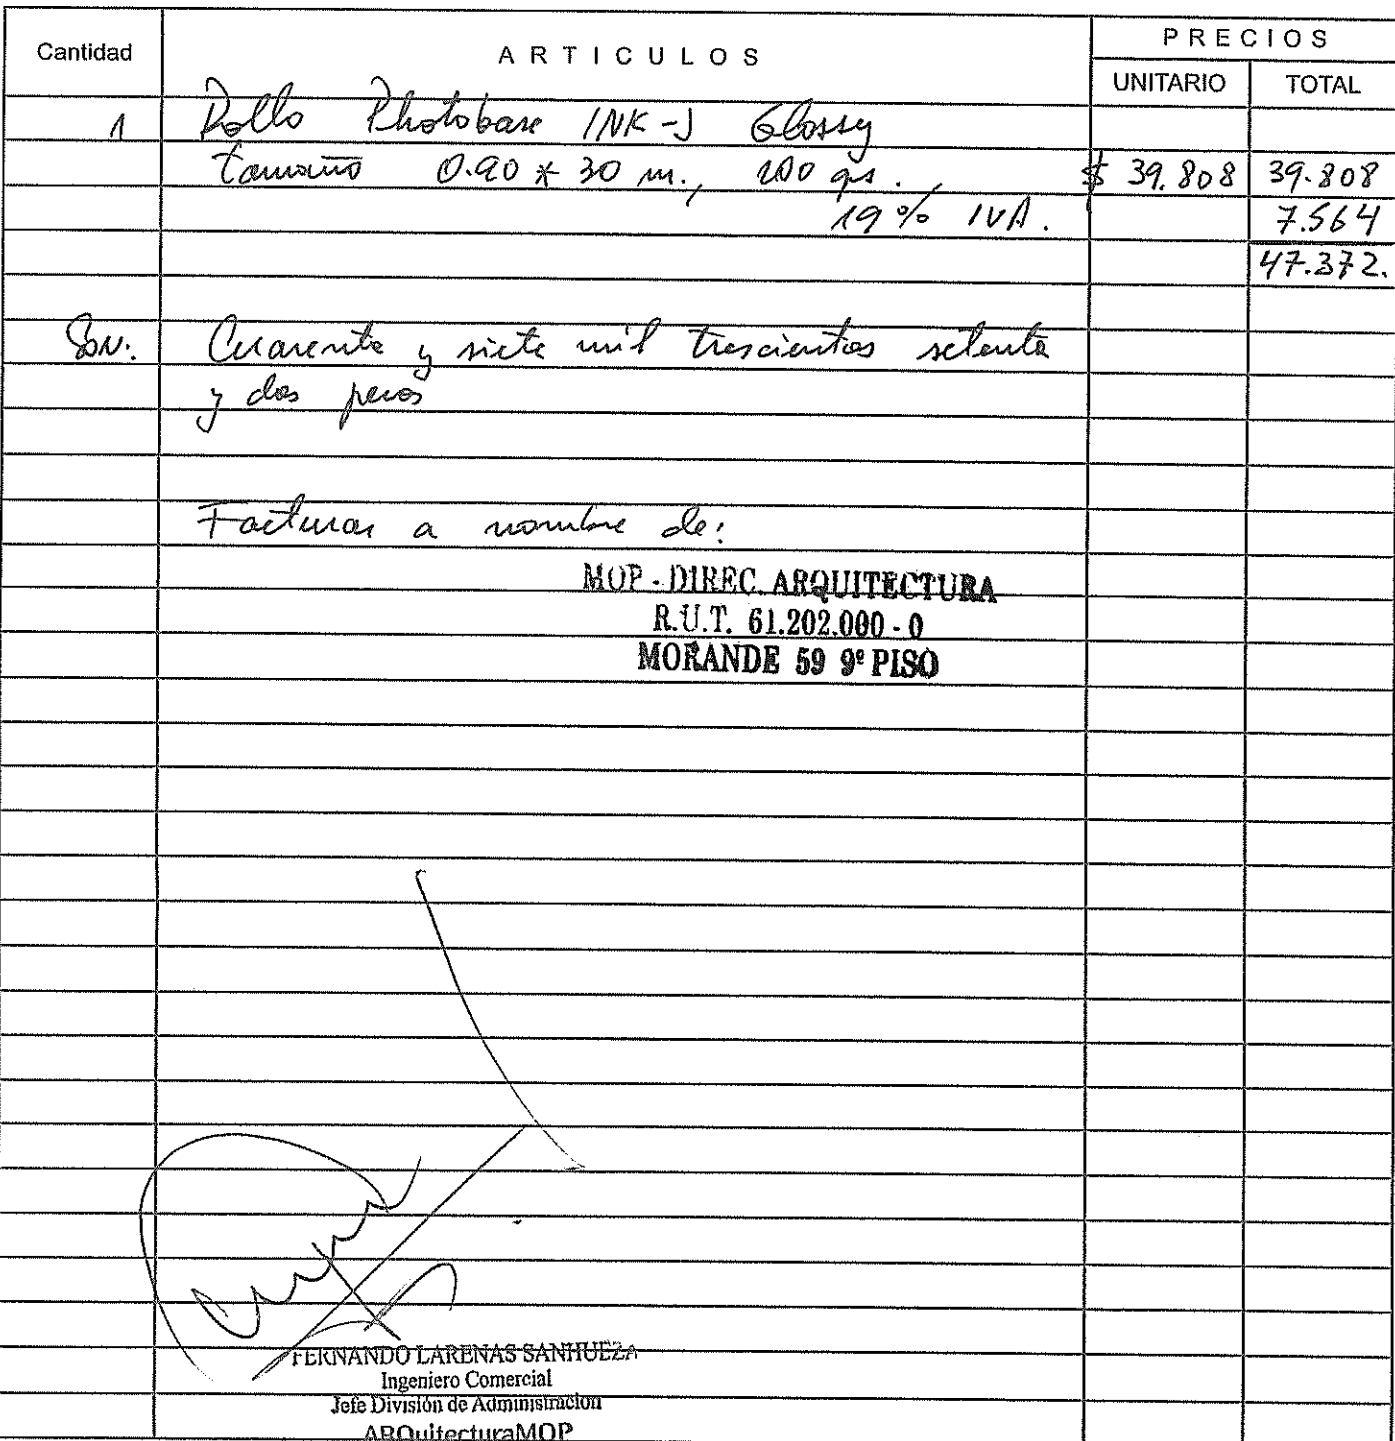 Cantidad ARTICULOS PRECIOS
UNITARIO TOTAL
1 Rollo Photobase INK-J Glossy
tamaño 0.90 * 30 m., 200 gs. $ 39.808 39.808
19% IVA. 7.564
47.372.
Son: Cuarenta y siete mil trescientos setenta
y dos pesos
Facturar a nombre de:
MOP - DIREC. ARQUITECTURA
R.U.T. 61.202.000 - 0
MORANDE 59 9º PISO
FERNANDO LARENAS SANHUEZA
Ingeniero Comercial
Jefe División de Administración
ARQuitecturaMOP